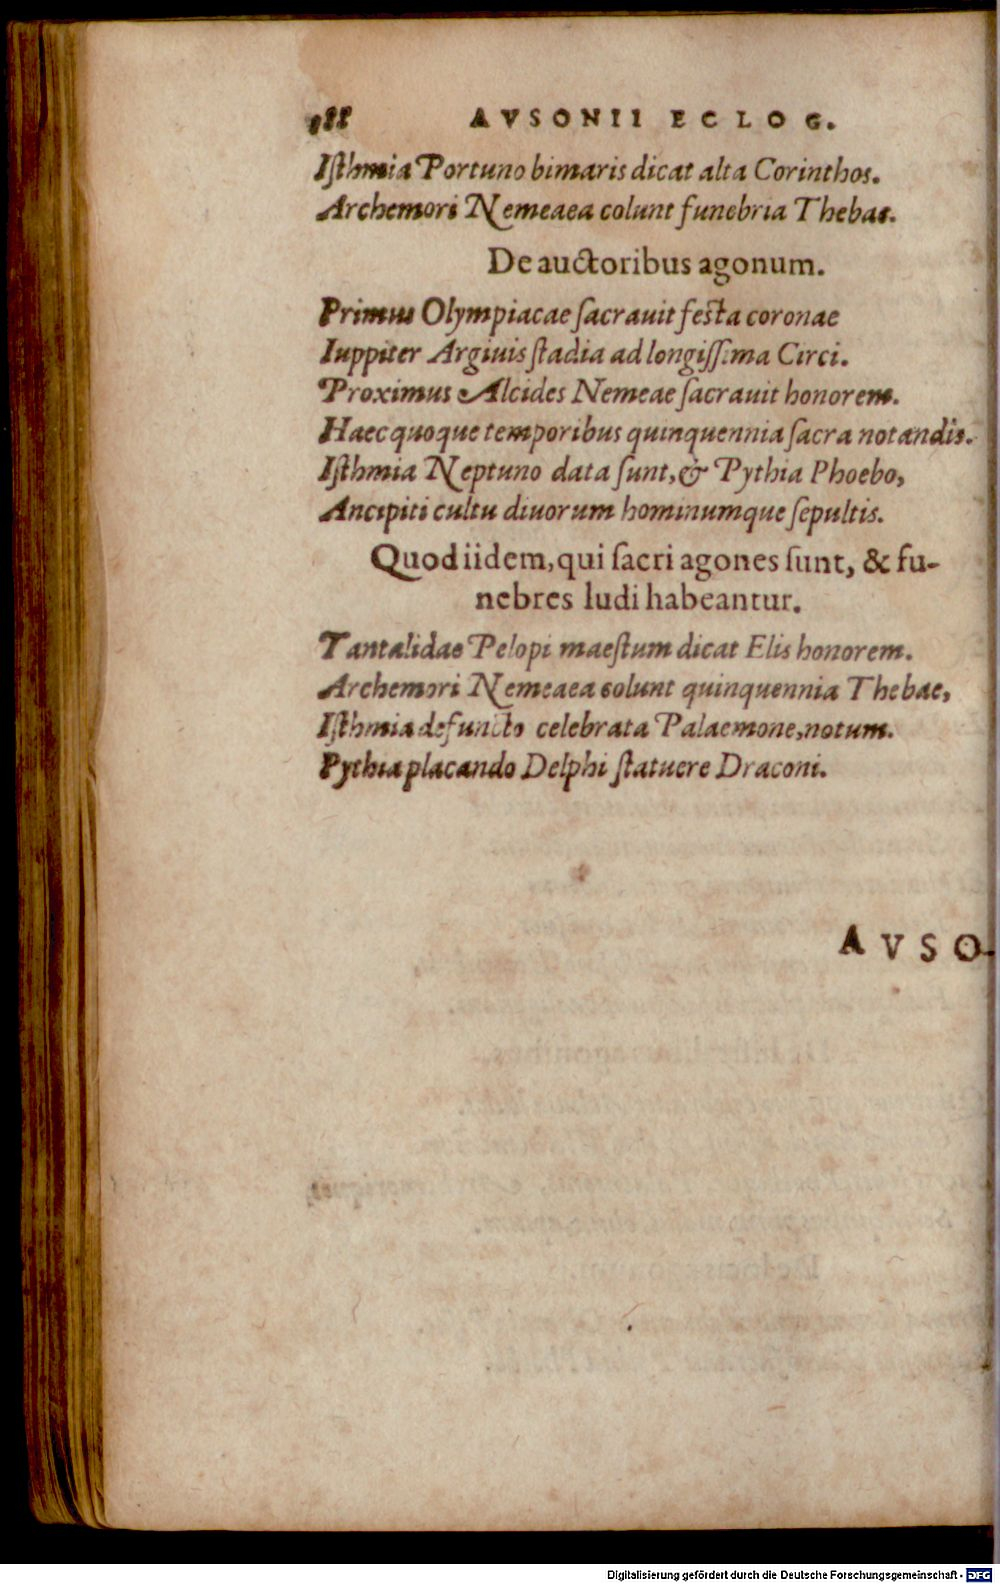 188 AVSONII ECLOG.
Isthmia Portuno bimaris dicat alta Corinthos.
Archemori Nemeaea colunt funebria Thebae.
De auctoribus agonum.
Primus Olympiacae sacrauit festa coronae
Iuppiter Argiuis stadia ad longissima Circi.
Proximus Alcides Nemeae sacrauit honorem.
Haec quoque temporibus quinquennia sacra notandis.
Isthmia Neptuno data sunt, & Pythia Phoebo,
Ancipiti cultu diuorum hominumque sepultis.
Quod iidem, qui sacri agones sunt, & fu-
nebres ludi habeantur.
Tantalidae Pelopi maestum dicat Elis honorem.
Archemori Nemeaea colunt quinquennia Thebae,
Isthmia defuncto celebrata Palaemone, notum.
Pythia placando Delphi statuere Draconi.
AVSO-
Digitalisierung gefördert durch die Deutsche Forschungsgemeinschaft - DFG